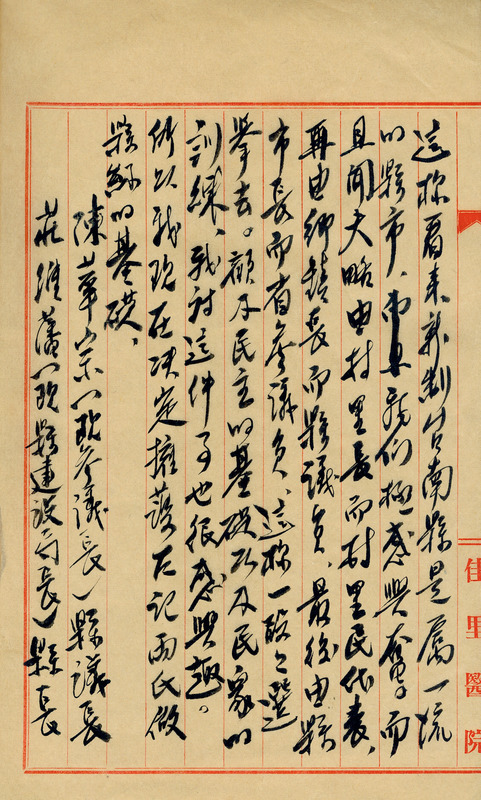 這樣看來新制台南縣是屬一流
的縣市、市且我們極感興奮。而
且聞大略由村里長而村里民代表、
再由鄉鎮長而縣議員、最後由縣
市長而省參議員、這樣一段之選
舉去。顧及民主的基礎以及民眾的
訓練、我對這件事也很感興趣。
所以我現在決定擁護左記兩氏做
縣縣的基礎、
陳華宗(現參議長)縣議長
莊維藩(現縣建設局長)縣長
佳里醫院